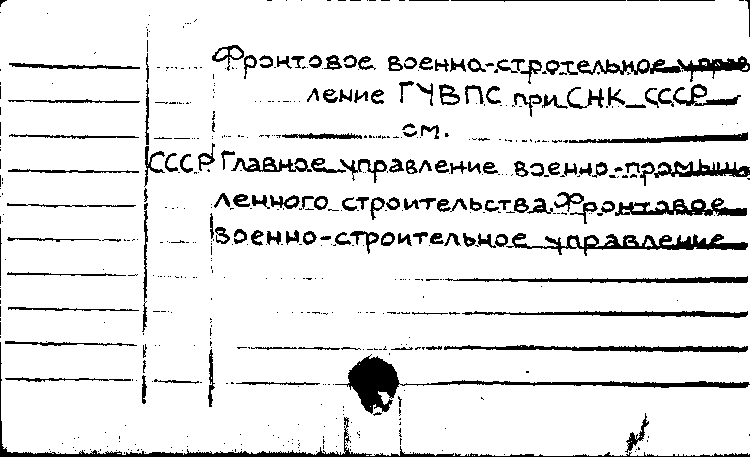 Фронтовое военно-стротельное управ
ление ГУВПС при СНК СССР
см.
СССР Главное управление военно-промыш
ленного строительства. Фронтовое
военно-строительное управление